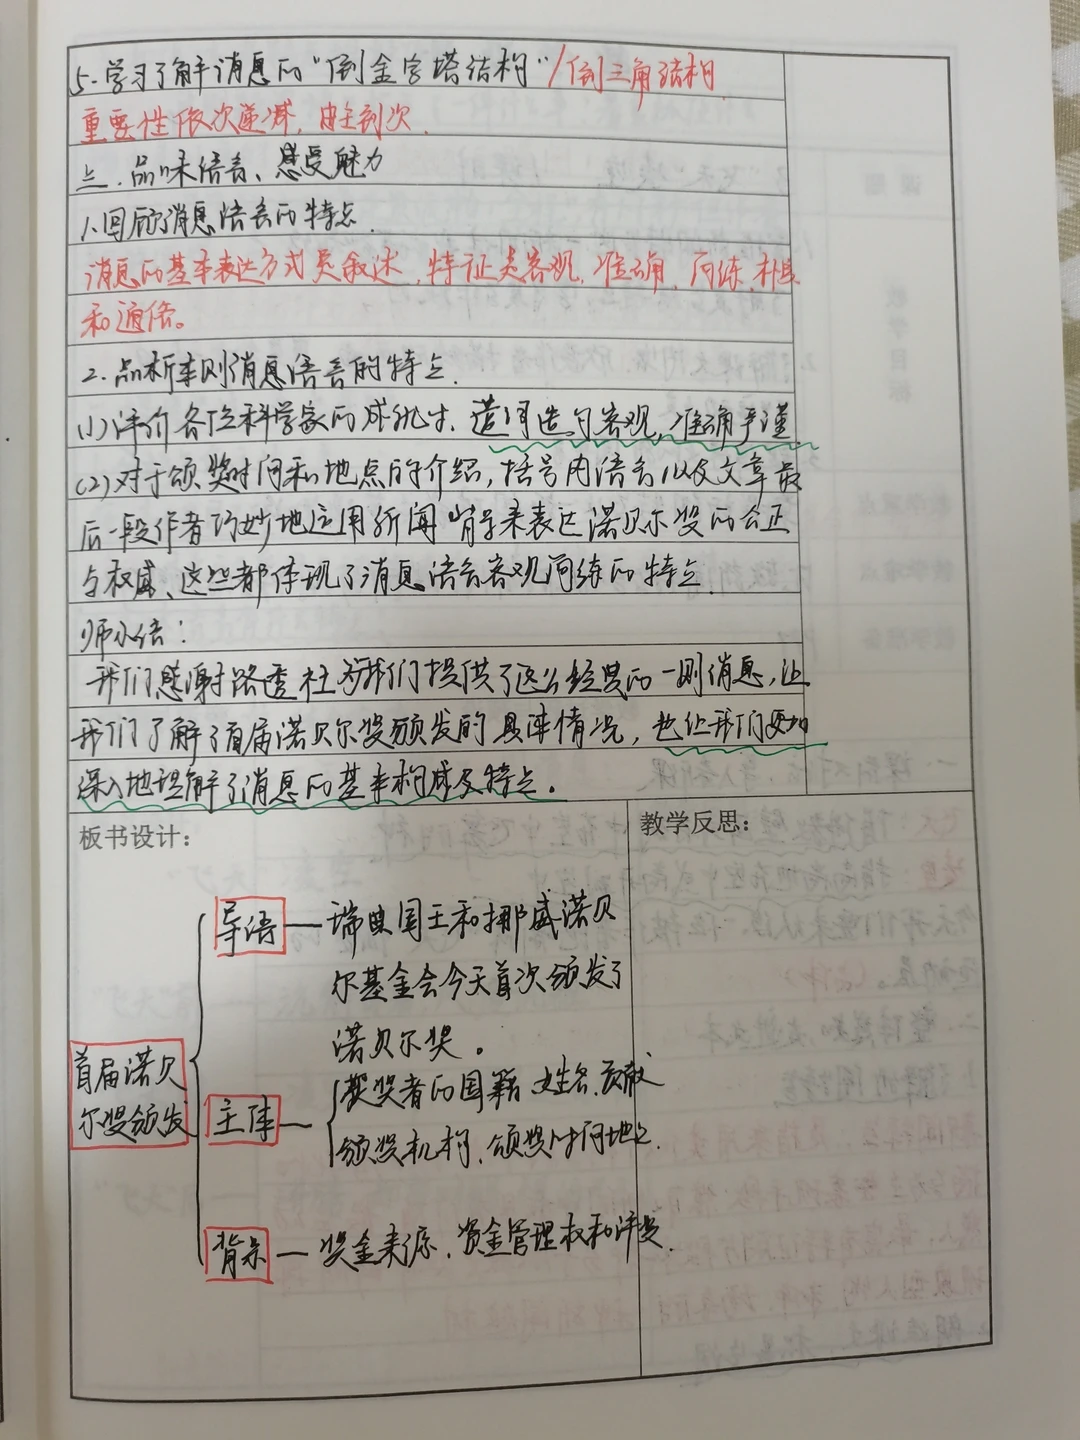 5.学习了解消息的“倒金字塔结构”/倒三角结构
重要性依次递减,由主到次.
三.品味语言、感受魅力
1.回顾消息语言的特点.
消息的基本表达方式是叙述,特征是客观,准确,简练,朴实
和通俗。
2.品析本则消息语言的特点.
(1)评价各位科学家的成就时,遣词造句客观,准确严谨
(2)对于颁奖时间和地点的介绍,括号内语言以及文章最
后一段作者巧妙地运用新闻背景来表达诺贝尔奖的公正
与权威、这些都体现了消息语言客观简练的特点.
师小结:
我们感谢路透社为我们提供了这么经典的一则消息,让
我们了解了首届诺贝尔奖颁发的具体情况,也让我们更加
深入地理解了消息的基本构成及特点。
板书设计:
教学反思:
首届诺贝
尔奖颁发
导语—瑞典国王和挪威诺贝
尔基金会今天首次颁发了
诺贝尔奖。
主体—获奖者的国籍、姓名、贡献
颁奖机构、颁奖时间地点.
背景—奖金来源、资金管理权和评定.